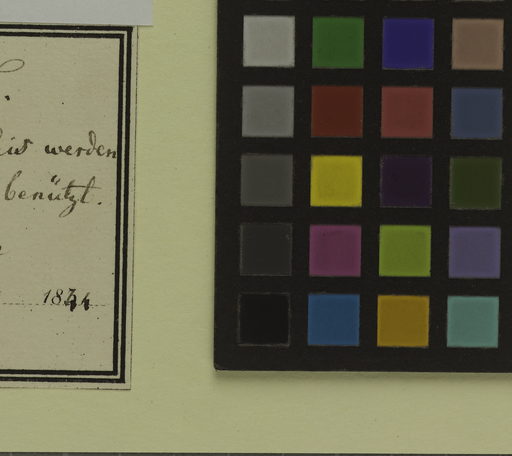 werden
benützt.
1844